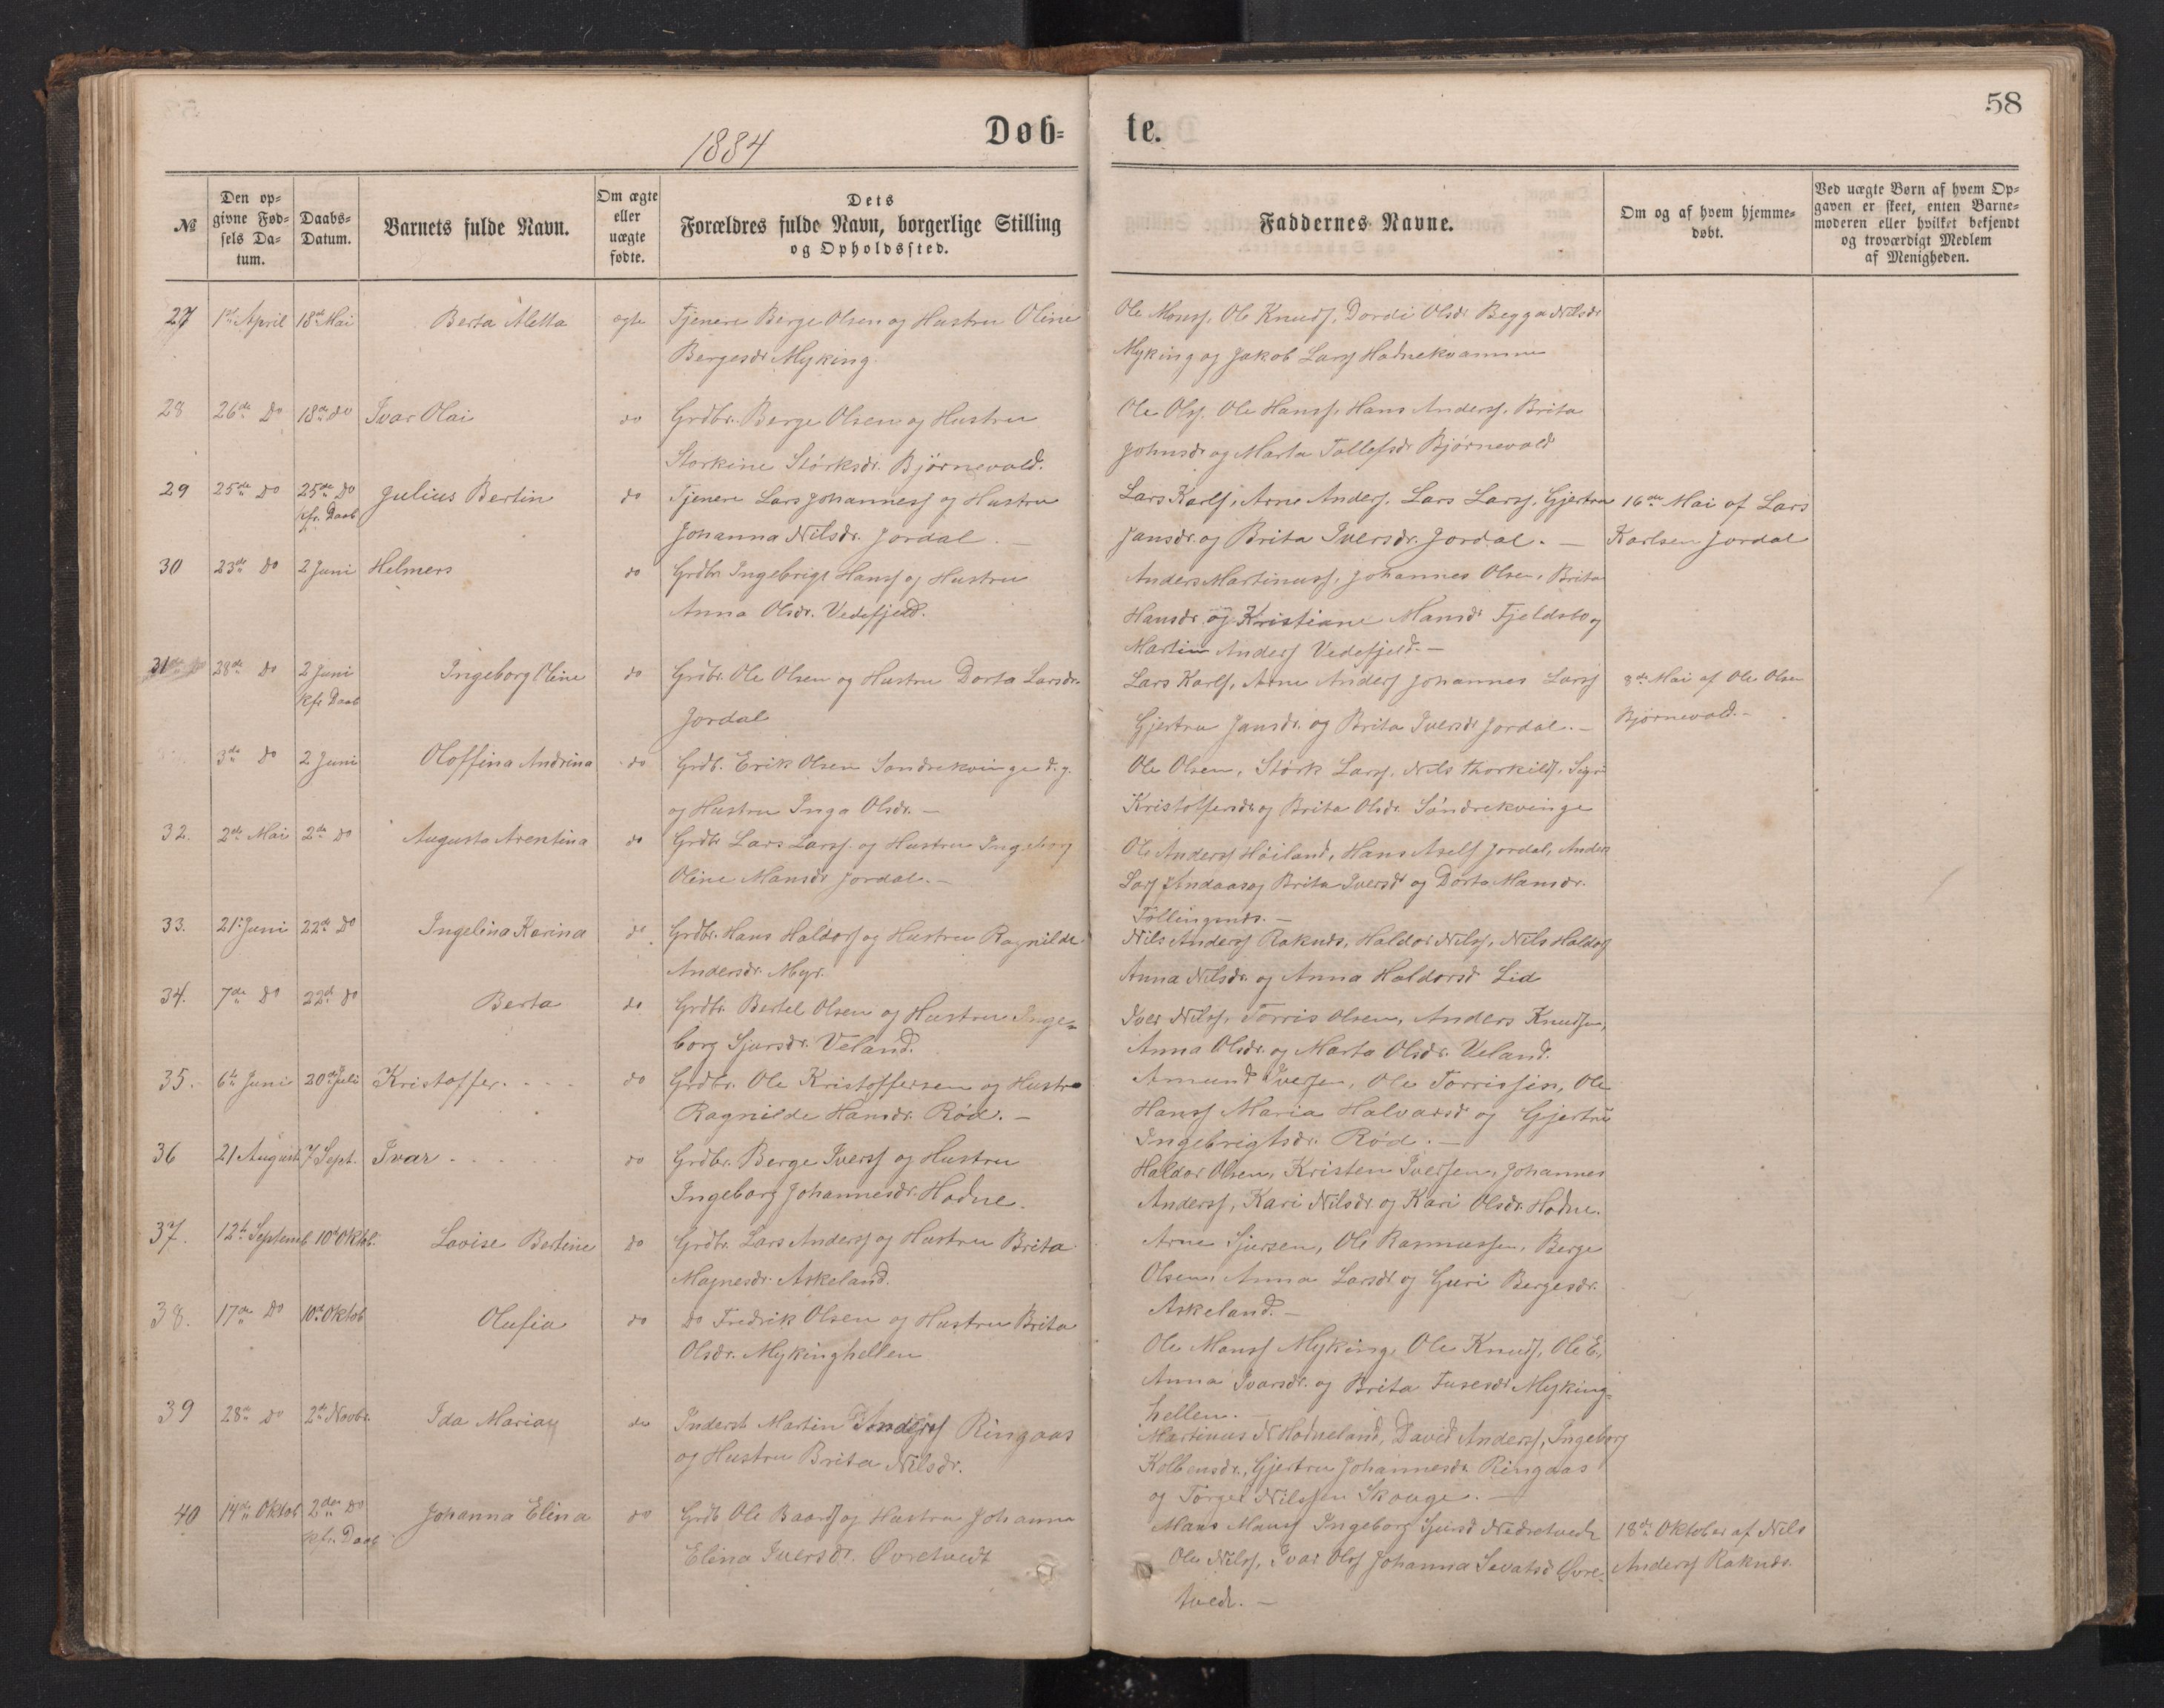 58
1884
Døb=te.
№
Den op=
givne Fød=
sels Da=
tum.
Daabs=
Datum.
Barnets fulde Navn.
Om ægte
eller
uægte
fødte.
Dets
Forældres fulde Navn, borgerlige Stilling
og Opholdssted.
Faddernes Navne.
Om og af hvem hjemme=
døbt.
Ved uægte Børn af hvem Op=
gaven er skeet, enten Barne=
moderen eller hvilket bekjendt
og troværdigt Medlem
af Menigheden.
27 1ste April 18de Mai Berta Aletta ægte Tjener Berge Olsen og Hustru Oline
Bergesdr Myking.
Ole Monss, Ole Knuds, Dordi Olsdr Begga Nilsdr
Myking og Jakob Larss Hodnekvamme
28 26de do 18de do Ivar Olai do Grdbr. Berge Olsen og Hustru
Storkine Størksdr. Bjørnevold.
Ole Olss. Ole Hanss, Hans Anderss, Brita
Johnsdr og Marta Tollefsdr Bjørnevold
29 25de do 25de do Julius Bertin do Tjener Lars Johanness og Hustru
kfr. Daab
Johanna Nilsdr. Jordal. —
Lars Karls, Arne Anderss. Lars Larss, Gjertru
Jansdr. og Brita Iversdr. Jordal. —
16de Mai af Lars
Karlsen Jordal
30 23de do 2 Juni Helmers do Grdbr Ingebrigt Hanss og Hustru
Anna Olsdr. Vedefjeld.
Anders Martinuss, Johannes Olsen, Brita
Hansdr og Kristiane Mansdr Fjeldsto og
Martin Anderss Vedefjeld. —
31 28de do 2 Juni Ingeborg Oline do Grdbr. Ole Olsen og Hustru Dorta Larsdr.
kfr Daab
Jordal
Lars Karls, Arne Anderss Johannes Larss
Gjertru Jansdr. og Brita Iversdr Jordal. —
3de Mai af Ole Olsen
Bjørnevold. —
3de do 2 Juni Oloffina Andrina do Grdb. Erik Olsen Søndrekvinge d.y.
og Hustru Inga Olsdr. —
Ole Olsen, Størk Larss, Nils Thorkilds, Sigri
Kristoffersdr og Brita Olsdr. Søndrekvinge
32. 2de Mai 2de do Augusta Arentina do Grdbr Lars Larss og Hustru Ingeborg
Oline Mansdr Jordal. —
Ole Anderss Høiland, Hans Axels Jordal, Anders
Larss og Brita Iversdr og Dorta Mansdr.
33. 21 Juni 22de do Ingelina Karina do Grdbr. Hans Haldorss og Hustru Ragnilde
Andersdr. Myr.
Nils Anderss Raknes, Haldor Nilss, Nils Haldorss
Anna Nilsdr. og Anna Haldorsdr Lid
34. 7de do 22d do Berta do Grdbr. Bertel Olsen og Hustru Inge=
borg Sjursdr. Veland.
Iver Nilss, Torris Olsen, Anders Knudsen,
Anna Olsdr. og Marta Olsdr. Veland.
35. 6te Juni 20de Juli Kristoffer. do Grdbr. Ole Kristoffersen og Hustru
Ragnilde Hansdr. Rød. —
Amund Iversen, Ole Torrissen, Ole
Hanss Maria Halvarsdr og Gjertru
Ingebrigtsdr. Rød. —
36 21 August 7 Sept. Ivar do Grdbr. Berge Iverss og Hustru
Ingeborg Johannesdr. Hodne.
Haldor Olsen, Kristen Iversen, Johannes
Anderss, Kari Nilsdr. og Kari Olsdr. Hodne.
37. 12te Septemb 10de Oktob. Lovise Bertine do Grdbr. Lars Anderss og Hustru Brita
Magnesdr. Askeland.
Arne Sjursen, Ole Rasmussen, Berge
Olsen, Anna Larsdr og Guri Bergesdr.
Askeland. —
38. 17de do 10de Oktob Olufia do do Fredrik Olsen og Hustru Brita
Olsdr. Mykinghellen
Ole Monss Myking, Ole Knuds, Ole E.
Anna Ivarsdr. og Brita Tusesdr Myking=
hellen. —
39 28de do 2de Novbr. Ida Maria do Inderst Martin Anderss Ringaas
og Hustru Brita Nilsdr.
Martinus N Hodneland, David Anderss, Ingeborg
Kolbensdr., Gjertru Johannesdr. Ringaas
og Torger Nilssen Skouge. —
40 14de Oktob 2den do Johanna Elina do Grdb Ole Baards og Hustru Johanna
kfr. Daab
Elina Iversdr. Øvretvedt
Mans Manss Ingeborg Sjursd Nedretvedt
Ole Nilss, Ivar Olss Johanna Sevatsd Øvre=
tvedt. —
18de Oktober af Nils
Anderss Raknes.